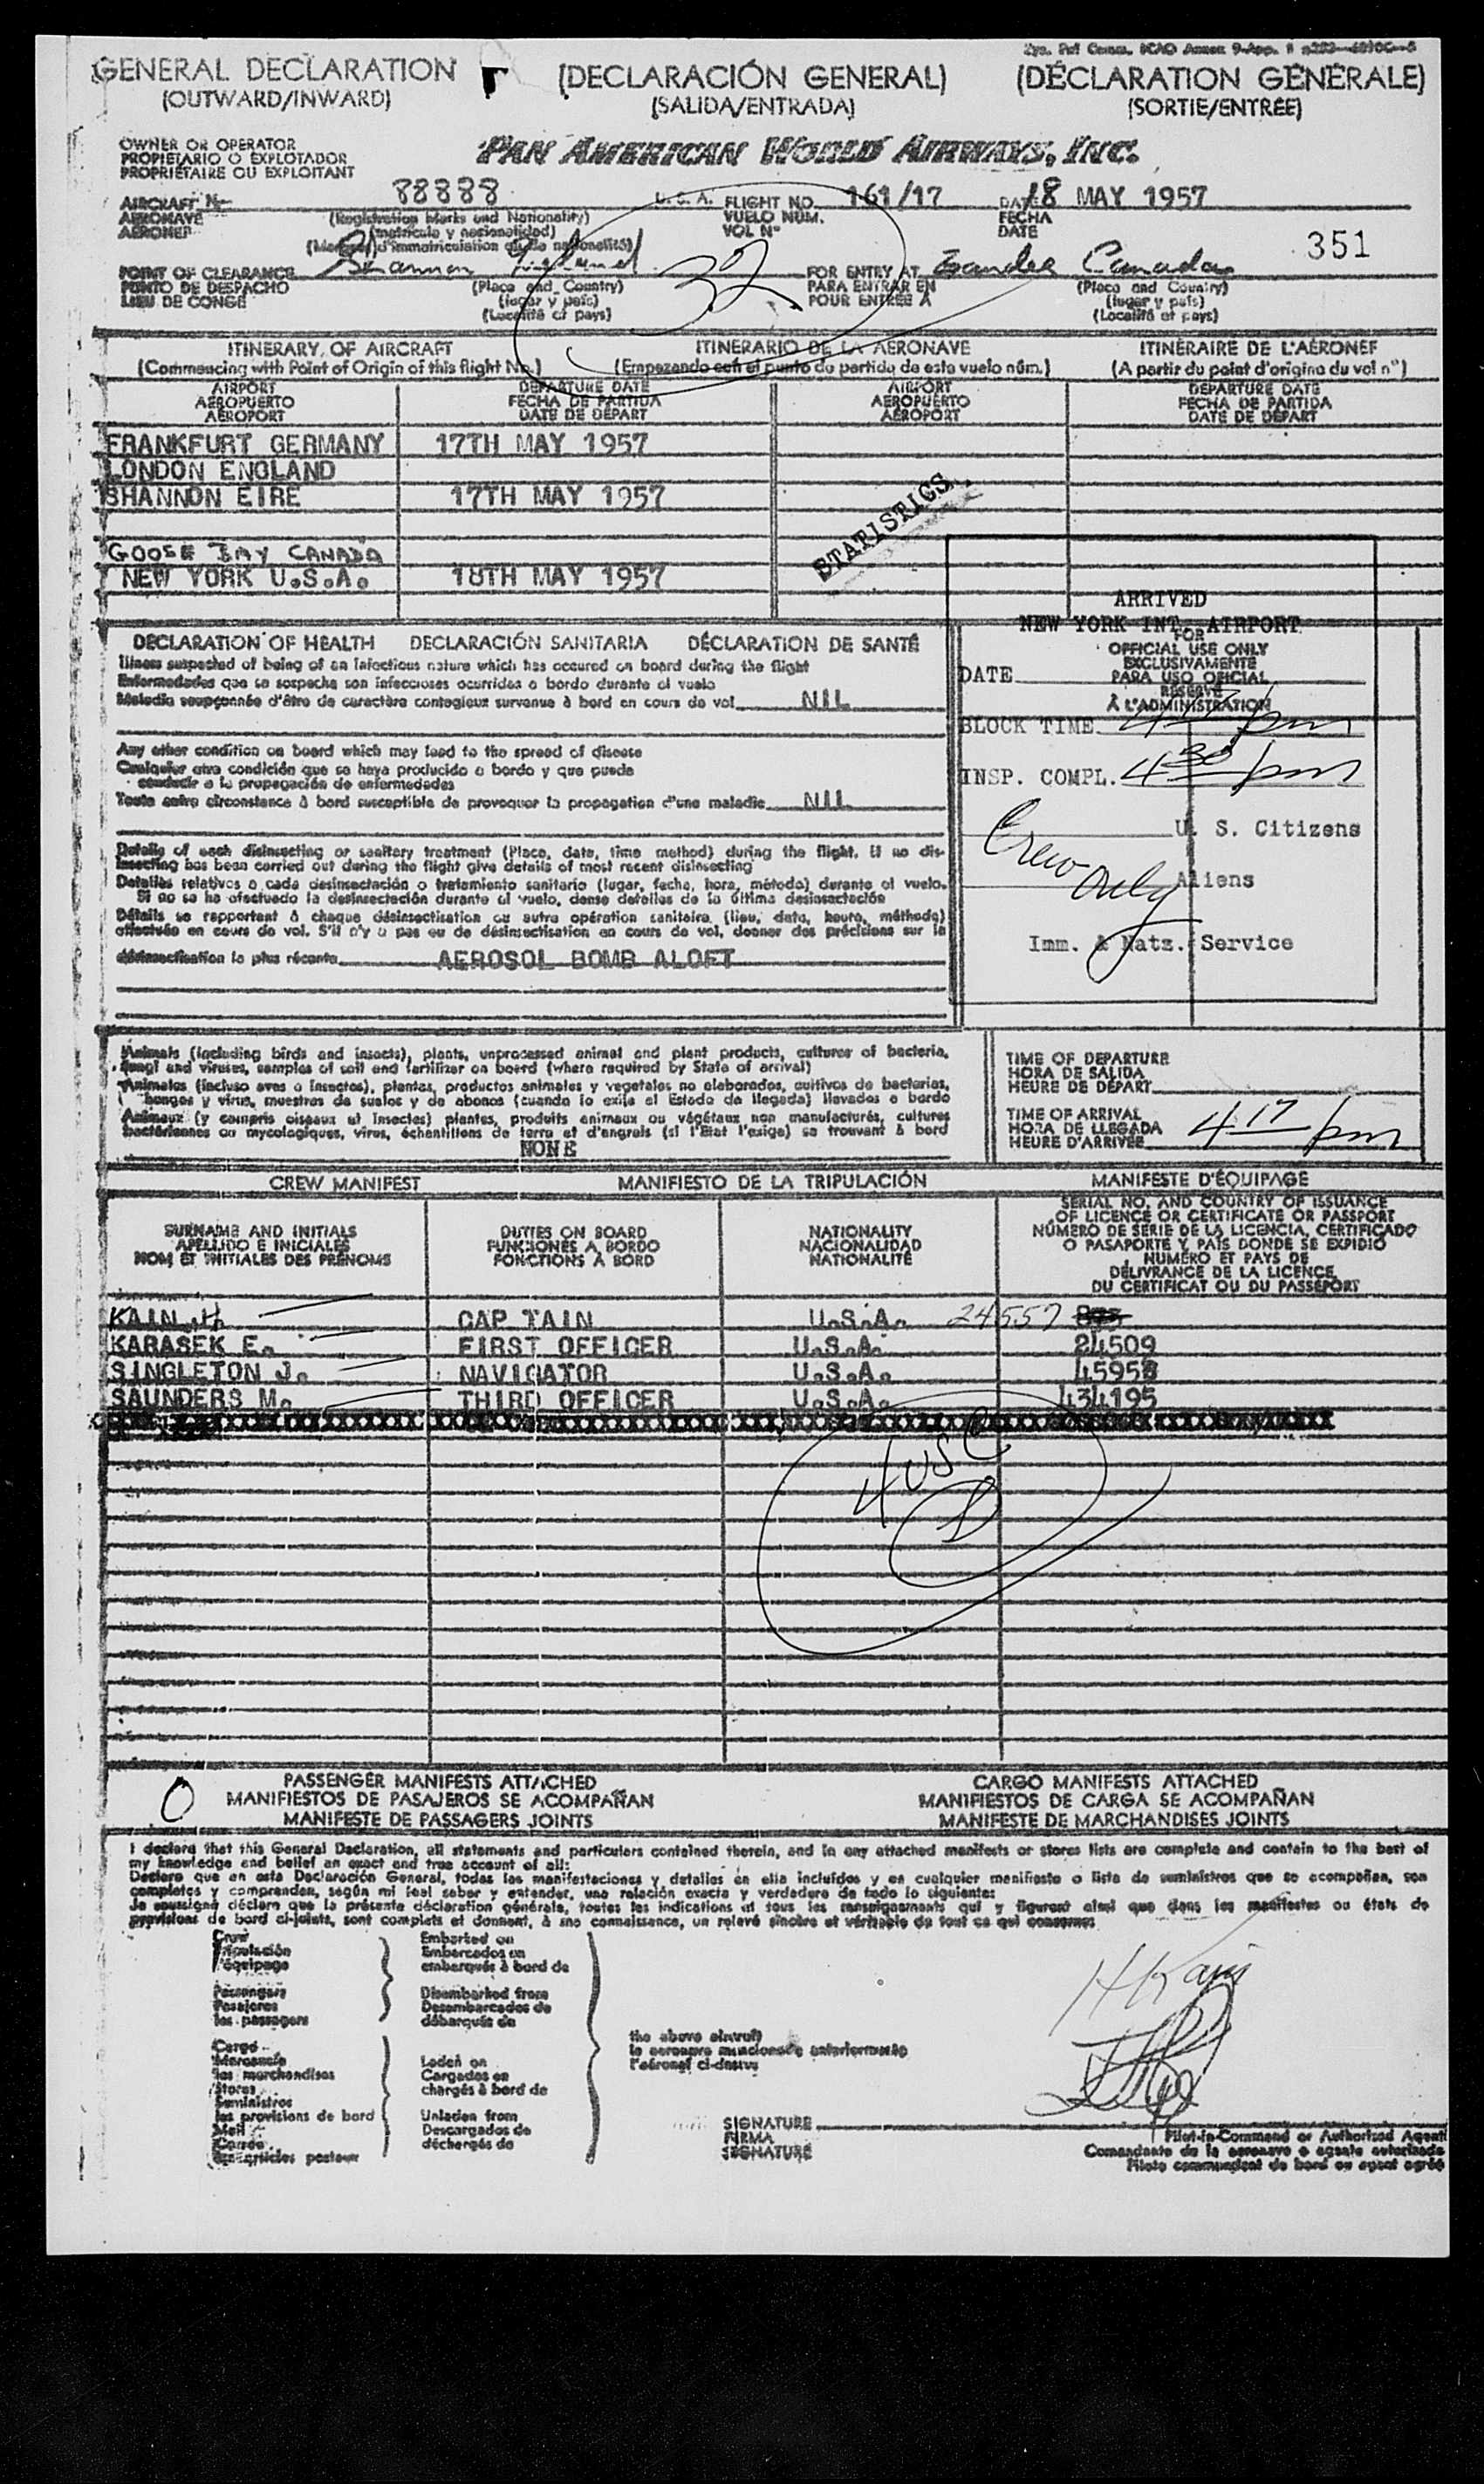 GENERAL DECLARATION
(OUTWARD/INWARD)
(DECLARACIÓN GENERAL)
(SALIDA/ENTRADA)
(DÉCLARATION GÉNÉRALE)
(SORTIE/ENTRÉE)
OWNER OR OPERATOR
PROPIETARIO O EXPLOTADOR
PROPRIÉTAIRE OU EXPLOITANT
PAN AMERICAN WORLD AIRWAYS, INC.
AIRCRAFT No. 88888 U.S.A. FLIGHT NO. 161/17 DATE 18 MAY 1957
AERONAVE (Registration Marks and Nationality) VUELO NÚM. FECHA
AERONEF (matrícula y nacionalidad) VOL Nº DATE
(Marques d'immatriculation et de nationalité)
351
POINT OF CLEARANCE Shannon Ireland 32 FOR ENTRY AT Gander Canada
PUNTO DE DESPACHO (Place and Country) PARA ENTRAR EN (Place and Country)
LIEU DE CONGÉ (lugar y país) POUR ENTRÉE À (lugar y país)
(Localité et pays) (Localité et pays)
ITINERARY OF AIRCRAFT ITINERARIO DE LA AERONAVE ITINÉRAIRE DE L'AÉRONEF
(Commencing with Point of Origin of this flight No.) (Empezando con el punto de partida de este vuelo núm.) (A partir du point d'origine du vol n°)
AIRPORT DEPARTURE DATE AIRPORT DEPARTURE DATE
AEROPUERTO FECHA DE PARTIDA AEROPUERTO FECHA DE PARTIDA
AÉROPORT DATE DE DÉPART AÉROPORT DATE DE DÉPART
FRANKFURT GERMANY 17TH MAY 1957
LONDON ENGLAND
SHANNON EIRE 17TH MAY 1957
STATISTICS
GOOSE BAY CANADA
NEW YORK U.S.A. 18TH MAY 1957
DECLARATION OF HEALTH DECLARACIÓN SANITARIA DÉCLARATION DE SANTÉ
Illness suspected of being of an infectious nature which has occured on board during the flight
Enfermedades que se sospecha son infecciosas ocurridas a bordo durante el vuelo
Maladie soupçonnée d'être de caractère contagieux survenue à bord en cours de vol NIL
Any other condition on board which may lead to the spread of disease
Cualquier otra condición que se haya producido a bordo y que pueda
conducir a la propagación de enfermedades
Toute autre circonstance à bord susceptible de provoquer la propagation d'une maladie NIL
Details of each disinsecting or sanitary treatment (Place, date, time method) during the flight. If no dis-
insecting has been carried out during the flight give details of most recent disinsecting
Detalles relativos a cada desinsectación o tratamiento sanitario (lugar, fecha, hora, método) durante el vuelo.
Si no se ha efectuado la desinsectación durante el vuelo, dense detalles de la última desinsectación
Détails se rapportant à chaque désinsectisation ou autre opération sanitaire. (lieu, date, heure, méthode)
effectuée en cours de vol. S'il n'y a pas eu de désinsectisation en cours de vol, donner des précisions sur la
désinsectisation la plus récente AEROSOL BOMB ALOFT
ARRIVED
NEW YORK INT. AIRPORT
FOR
OFFICIAL USE ONLY
EXCLUSIVAMENTE
PARA USO OFICIAL
RÉSERVÉ
À L'ADMINISTRATION
DATE
BLOCK TIME 4 17 pm
INSP. COMPL. 4 30 pm
Crew Only
U. S. Citizens
Aliens
Imm. & Natz. Service
Animals (including birds and insects), plants, unprocessed animal and plant products, cultures of bacteria,
fungi and viruses, samples of soil and fertilizer on board (where required by State of arrival)
Animales (incluso aves o insectos), plantas, productos animales y vegetales no elaborados, cultivos de bacterias,
hongos y virus, muestras de suelos y de abonos (cuando lo exija el Estado de llegada) llevados a bordo
Animaux (y compris oiseaux et insectes) plantes, produits animaux ou végétaux non manufacturés, cultures
bactériennes ou mycologiques, virus, échantillons de terre et d'engrais (si l'Etat l'exige) se trouvant à bord
NONE
TIME OF DEPARTURE
HORA DE SALIDA
HEURE DE DÉPART
TIME OF ARRIVAL
HORA DE LLEGADA
HEURE D'ARRIVÉE 4 17 pm
CREW MANIFEST MANIFIESTO DE LA TRIPULACIÓN MANIFESTE D'ÉQUIPAGE
SURNAME AND INITIALS
APELLIDO E INICIALES
NOM ET INITIALES DES PRÉNOMS
DUTIES ON BOARD
FUNCIONES A BORDO
FONCTIONS À BORD
NATIONALITY
NACIONALIDAD
NATIONALITÉ
SERIAL NO. AND COUNTRY OF ISSUANCE
OF LICENCE OR CERTIFICATE OR PASSPORT
NÚMERO DE SERIE DE LA LICENCIA, CERTIFICADO
O PASAPORTE Y PAÍS DONDE SE EXPIDIÓ
NUMÉRO ET PAYS DE
DÉLIVRANCE DE LA LICENCE,
DU CERTIFICAT OU DU PASSEPORT
KAIN H CAPTAIN U.S.A. 24557
KARASEK E. FIRST OFFICER U.S.A. 24509
SINGLETON J. NAVIGATOR U.S.A. 45958
SAUNDERS M. THIRD OFFICER U.S.A. 434195
4 USC
D
0
PASSENGER MANIFESTS ATTACHED
MANIFIESTOS DE PASAJEROS SE ACOMPAÑAN
MANIFESTE DE PASSAGERS JOINTS
CARGO MANIFESTS ATTACHED
MANIFIESTOS DE CARGA SE ACOMPAÑAN
MANIFESTE DE MARCHANDISES JOINTS
I declare that this General Declaration, all statements and particulars contained therein, and in any attached manifests or stores lists are complete and contain to the best of
my knowledge and belief an exact and true account of all:
Declaro que en esta Declaración General, todas las manifestaciones y detalles en ella incluidos y en cualquier manifiesto o lista de suministros que se acompañan, son
completos y comprenden, según mi leal saber y entender, una relación exacta y verdadera de todo lo siguiente:
Je soussigné déclare que la présente déclaration générale, toutes les indications et tous les renseignements qui y figurent ainsi que dans les manifestes ou états de
provisions de bord ci-joints, sont complets et donnent, à ma connaissance, un relevé sincère et véritable de tout ce qui concerne:
Crew
Tripulación
l'équipage
Passengers
Pasajeros
les passagers
Cargo
Mercancía
les marchandises
Stores
Suministros
les provisions de bord
Mail
Correo
les articles postaux
Embarked on
Embarcados en
embarqués à bord de
Disembarked from
Desembarcados de
débarqués de
Laden on
Cargados en
chargés à bord de
Unladen from
Descargados de
déchargés de
the above aircraft
la aeronave mencionada anteriormente
l'aéronef ci-dessus
H Kain
SIGNATURE
FIRMA
SIGNATURE
Pilot-in-Command or Authorized Agent
Comandante de la aeronave o agente autorizado
Pilote commandant de bord ou agent agréé